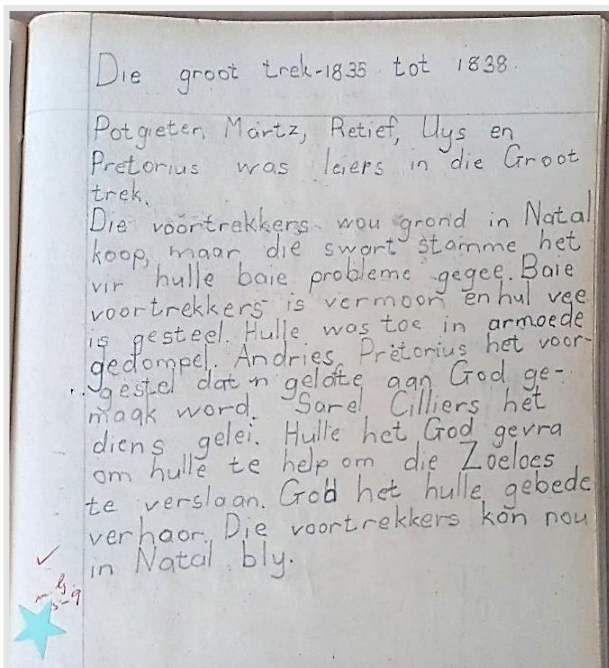 Die groot trek-1835 tot 1838.
Potgieter, Maritz, Retief, Uys en
Pretorius was leiers in die Groot
trek.
Die voortrekkers wou grond in Natal
koop, maar die swart stamme het
vir hulle baie probleme gegee. Baie
voortrekkers is vermoor en hul vee
is gesteel. Hulle was toe in armoede
gedompel. Andries Pretorius het voor-
gestel dat 'n gelofte aan God ge-
maak word. Sarel Cilliers het
diens gelei. Hulle het God gevra
om hulle te help om die Zoeloes
te verslaan. God het hulle gebede
verhoor. Die voortrekkers kon nou
in Natal bly.